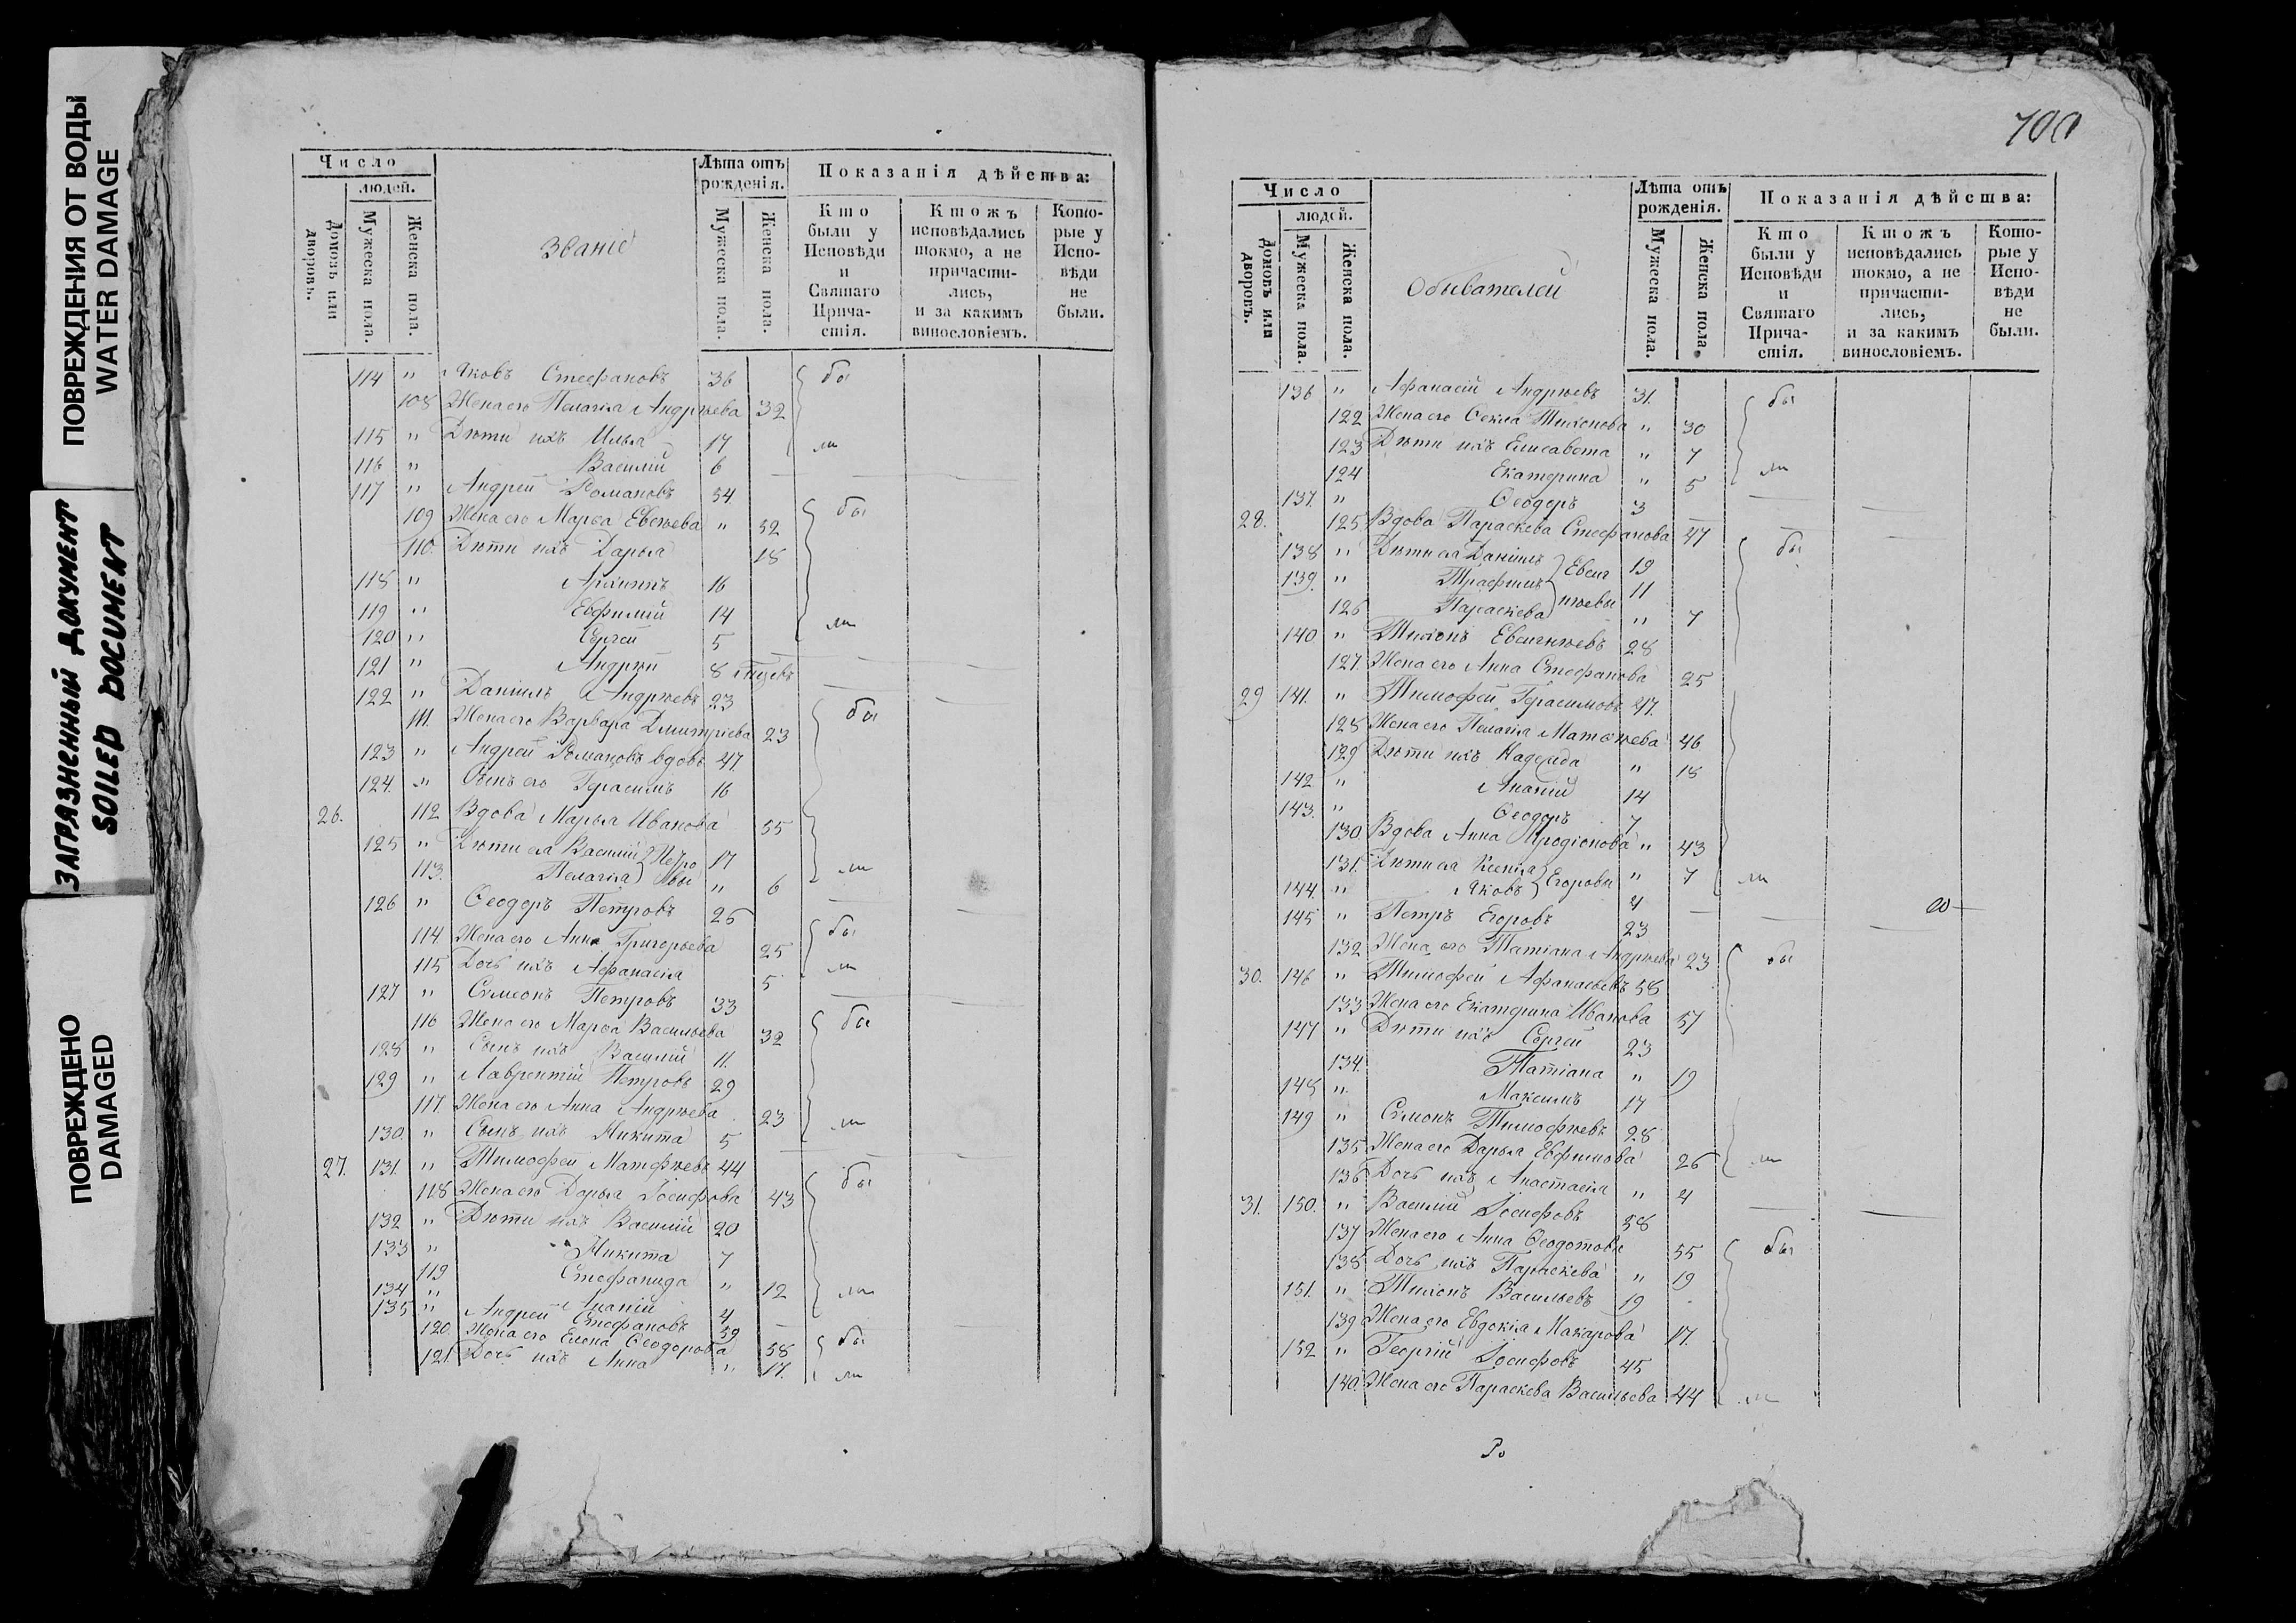 ПОВРЕЖДЕНИЯ ОТ ВОДЫ
WATER DAMAGE
ЗАГРЯЗНЕННЫЙ ДОКУМЕНТ
SOILED DOCUMENT
ПОВРЕЖДЕНО
DAMAGED
Число
людей.
Домовъ или дворовъ.
Мужеска пола.
Женска пола.
Званіе
Лѣта отъ рожденія.
Мужеска пола.
Женска пола.
Показанія дѣйства:
Кто были у Исповѣди и Святаго Причастія.
Ктожъ исповѣдались токмо, а не причастились, и за какимъ винословіемъ.
Которые у Исповѣди не были.
114 " Яковъ Стефановъ 36 бы
108 Жена его Пелагія Андрѣева 32
115 " Дѣти ихъ Илья 17 ли
116 " Василій 6
117 " Андрей Романовъ 54
109 Жена его Марѳа Евсѣева " 52 бы
110 Дѣти ихъ Дарья 18
118 " Архипъ 16
119 " Евфимій 14 ли
120 " Сергей 5
121 " Андрѣй 8
122 " Даніилъ Андрѣевъ 23
111 Жена его Варвара Дмитріева 23 бы
123 " Андрей Романовъ вдовъ 47
124 " Сынъ его Герасимъ 16
26. 112 Вдова Марья Иванова 55
125 " Дѣти ея Василій Петро 17 ли
113. Пелагія вы " 6
126 " Ѳеодоръ Петровъ 26
114 Жена его Анна Григорьева 25 бы
115 Дочь ихъ Афанасія 5 ли
127 " Сѵмеонъ Петровъ 33
116 Жена его Марѳа Васильева 32 бы
128 " Сынъ ихъ Василій 11.
129 " Лаврентій Петровъ 29
117 Жена его Анна Андрѣева 23
130 " Сынъ ихъ Никита 5 ли
27. 131 " Тимофей Матфѣевъ 44
118 Жена его Дарья Іосифова 43 бы
132 " Дѣти ихъ Василій 20
133 " Никита 7
119 Стефанида " 12 ли
134 " Ананій 4
135 " Андрей Стефановъ 59
120 Жена его Елена Ѳеодорова 58 бы
121 Дочь ихъ Анна " 17. ли
700
Число
людей.
Домовъ или дворовъ.
Мужеска пола.
Женска пола.
Обывателей
Лѣта отъ рожденія.
Мужеска пола.
Женска пола.
Показанія дѣйства:
Кто были у Исповѣди и Святаго Причастія.
Ктожъ исповѣдались токмо, а не причастились, и за какимъ винословіемъ.
Которые у Исповѣди не были.
136 " Афанасій Андрѣевъ 31. бы
122 Жена его Ѳекла Тихонова " 30
123 Дѣти ихъ Елисавета " 7
124 Екатерина " 5 ли
137. " Ѳеодоръ 3
28. 125 Вдова Параскева Стефанова 47 бы
138 " Дѣти ея Даніилъ Евсиг 19
139 " Трафимъ нѣевы 11
126 Параскева " 7
140 " Тихонъ Евсигнѣевъ 28
127. Жена его Анна Стефанова 25
29 141 " Тимофей Герасимовъ 47.
128 Жена его Пелагія Матѳѣева 46
129 Дѣти ихъ Надежда " 18
142 " Ананій 14
143. " Ѳеодоръ 7
130 Вдова Анна Иродіонова " 43
131. Дѣти ея Ксенія Егоровы " 7 ли
144. " Яковъ 4
145 " Петръ Егоровъ 23
132 Жена его Татіана Андрѣева 23 бы
30. 146 " Тимофей Афанасьевъ 58
133 Жена его Екатерина Иванова 57
147 " Дѣти ихъ Сергей 23
134. Татіана " 19
148 " Максимъ 17
149 " Сѵмеонъ Тимофѣевъ 28
135 Жена его Дарья Евфимова 26 ли
136 Дочь ихъ Анастасія " 4
31. 150. " Василій Іосифовъ 58
137 Жена его Анна Ѳеодотова 55 бы
138 Дочь ихъ Параскева " 19
151. " Тихонъ Васильевъ 19
139 Жена его Евдокія Макарова 17.
152 " Георгій Іосифовъ 45
140. Жена его Параскева Васильева 44 ли